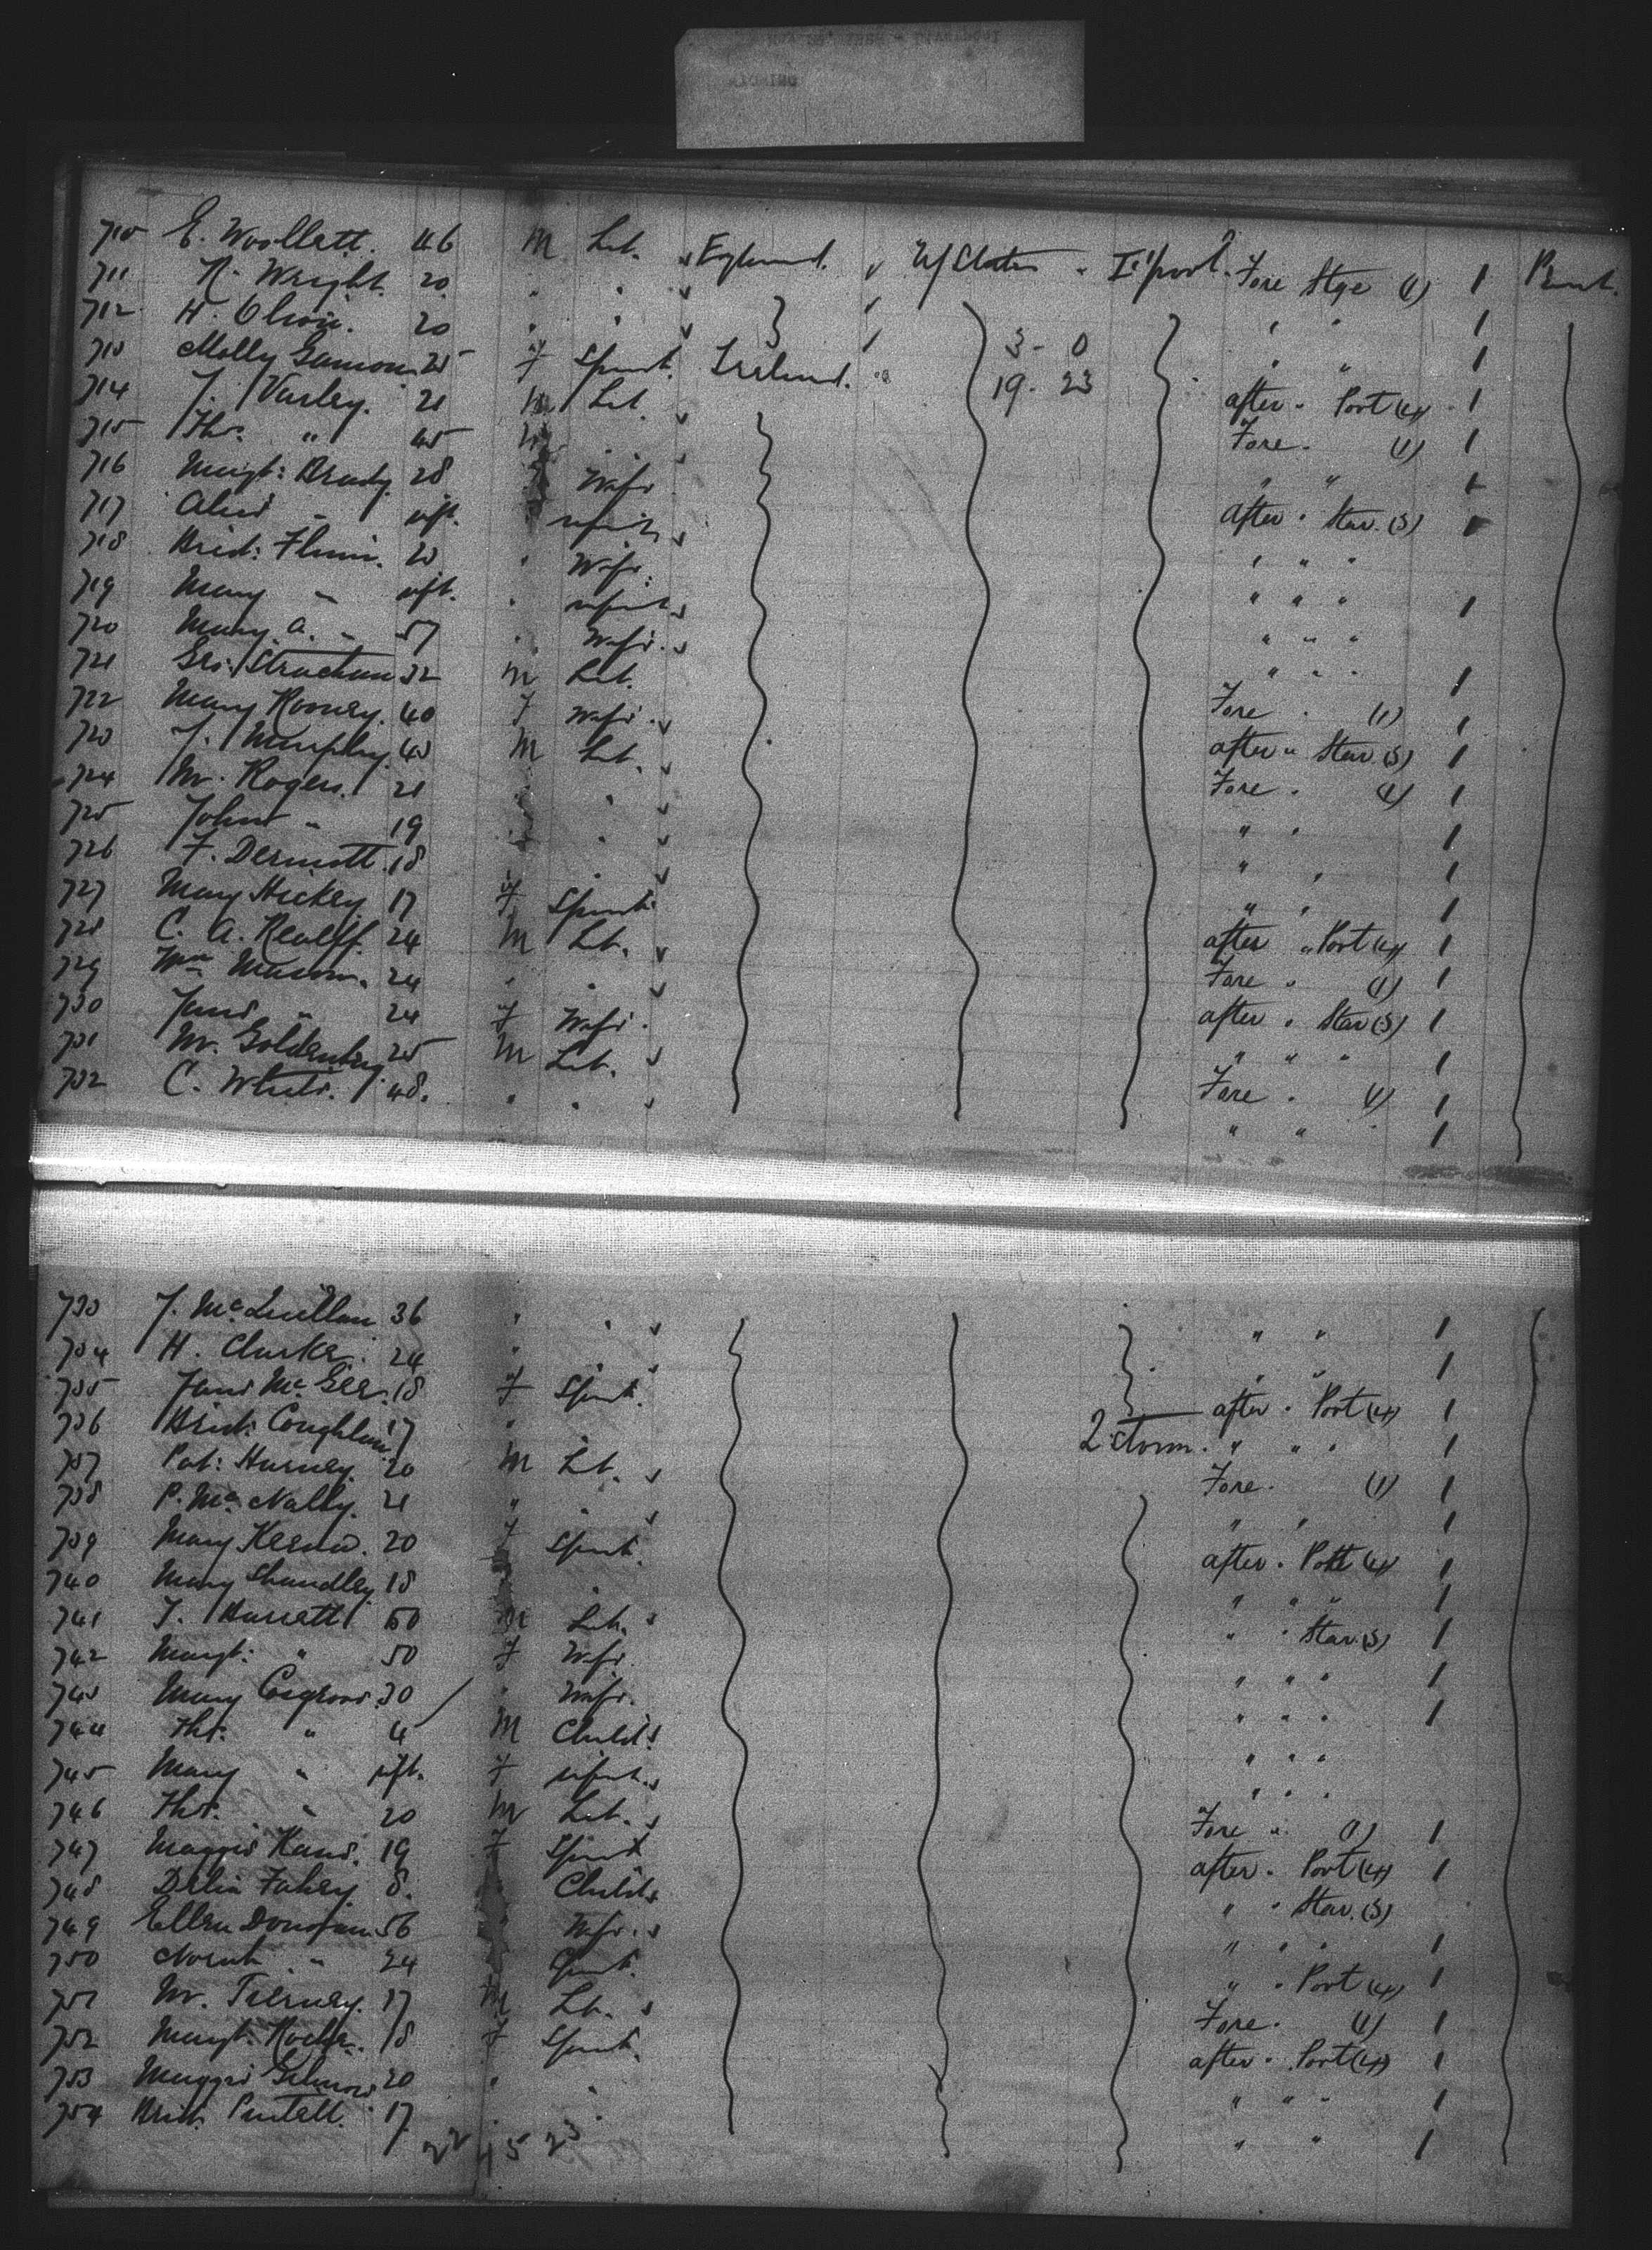 710 E. Woollett. 46 M Lab. England. U/States L'pool. Fore Stge (1) 1 Pmt.
711 R. Wright. 20 " " " " 1
712 H. Olson. 20 " " 3 - 0 " " 1
713 Molly Gamon 25 F Spinst. Ireland. 19 - 23 after " Port (4) 1
714 J. Varley. 21 M Lab. Fore " (1) 1
715 Thos. " 45 M " " " 1
716 Margt: Brady. 28 Wife after " Star. (3) 1
717 " inft. infant " " "
718 Brid: 20 " Wife. " " " 1
719 Mary " inft. " infant " " "
720 Mary A. " 57 " Wife. " " " 1
721 Geo. Strachan 32 M Lab. Fore " (1) 1
722 Mary Rooney. 40 F Wife. after " Star. (3) 1
723 J. Murphy. 40 M Lab. Fore " (1) 1
724 M. Rogers. 21 " " " " 1
725 John " 19 " " " " 1
726 F. Dermott. 18 " " " " 1
727 Mary Hickey 17 F Spinst. after " Port (4) 1
728 C. A. 24 M Lab. Fore " (1) 1
729 Wm Mason. 24 " " after " Star (3) 1
730 Jane " 24 F Wife. " " " 1
731 M. Goldenberg 25 M Lab. Fore " (1) 1
732 C. White. 48. " " " " 1
733 J. McQuillan 36 " " " " 1
734 H. Clarke. 24 " " " " 1
735 Jane McGee. 18 F Spinst. after " Port (4) 1
736 Brid: Coughlan 17 " " Q'town. " " " 1
737 Pat: Hurney. 20 M Lab. Fore " (1) 1
738 P. McNally. 21 " " " " 1
739 Mary 20 F Spinst. after " Port (4) 1
740 Mary Shandley 18 " " " " 1
741 J. Barrett 50 M Lab. " " Star. (3) 1
742 Margt: " 50 F Wife. " " " 1
743 Mary Cosgrove. 30 " Wife. " " " 1
744 Thos. " 4 M Child. " " "
745 Mary " inft. F infant. " " "
746 Thos. " 20 M Lab. Fore " (1) 1
747 Maggie Kane. 19 F Spinst after " Port (4) 1
748 Delia Fahey 8. Child. " " Star. (3)
749 Ellen Donovan 56 Wife. " " " 1
750 Norah " 24 Spinst. " " Port (4) 1
751 M. Tierney. 17 M Lab. Fore " (1) 1
752 Margt. Roche. 18 F Spinst. after " Port (4) 1
753 Maggie Gilmore 20 " " " " " 1
754 Brid. 17. " " " " 1
22 45 23